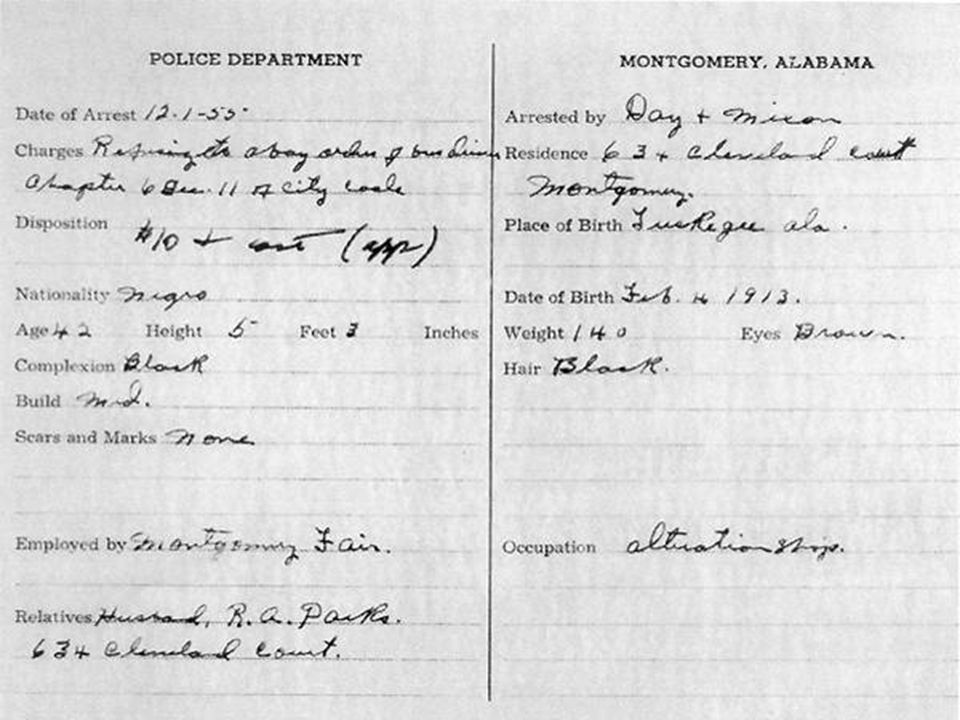 POLICE DEPARTMENT
MONTGOMERY, ALABAMA
Date of Arrest 12-1-55
Arrested by Day + Mixon
Charges Refusing to abay orders of bus driver
Residence 634 Cleveland Court
Chapter 6 Sec. 11 of City Code
Montgomery.
Disposition $10 + cost (app)
Place of Birth Tuskegee ala.
Nationality Negro
Date of Birth Feb. 4 1913.
Age 42 Height 5 Feet 3 Inches
Weight 140 Eyes Brown.
Complexion Black
Hair Black.
Build Med.
Scars and Marks None
Employed by Montgomery Fair.
Occupation alteration shop.
Relatives Husband, R. A. Parks.
634 Cleveland Court.